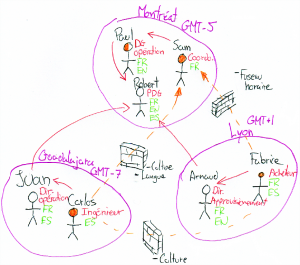 Montréal
GMT-5
Paul
DG
opération
FR
EN
Sam
Coordo.
FR
Robert
PDG
FR
EN
ES
-Fuseau
horaire
GMT+1
Lyon
Guadalajara
GMT-7
-Culture
-Langue
Juan
Dir.
opération
FR
ES
Carlos
Ingénieur
ES
Arnaud
Dir.
Approvisionnement
FR
EN
Fabrice
Acheteur
FR
ES
-Culture